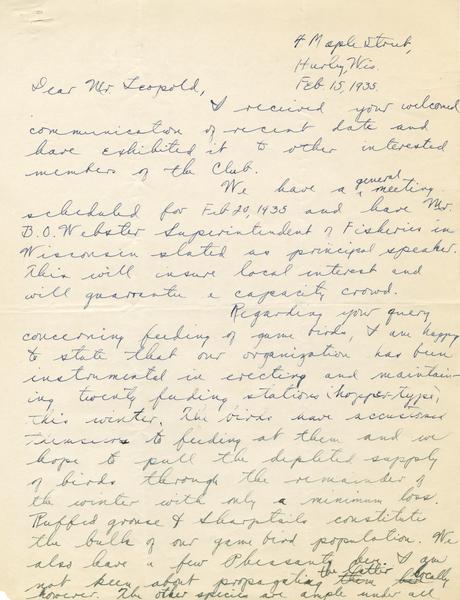 4 Maple Street,
Hurley, Wis.
Feb 15, 1935.
Dear Mr. Leopold,
I received your welcomed
communication of recent date and
have exhibited it to other interested
members of the Club.
We have a general meeting
scheduled for Feb 20, 1935 and have Mr.
B.O. Webster Superintendent of Fisheries in
Wisconsin slated as principal speaker.
This will insure local interest and
will guarantee a capacity crowd.
Regarding your query
concerning feeding of game birds, I am happy
to state that our organization has been
instrumental in erecting and maintain-
ing twenty feeding stations, hopper type,
this winter. The birds have accustomed
themselves to feeding at them and we
hope to pull the depleted supply
of birds through the remainder of
the winter with only a minimum loss.
Ruffed grouse & Sharptails constitute
the bulk of our game bird population. We
also have a few Pheasants I am
not keen about propagating the latter locally
however. The other species are ample under all